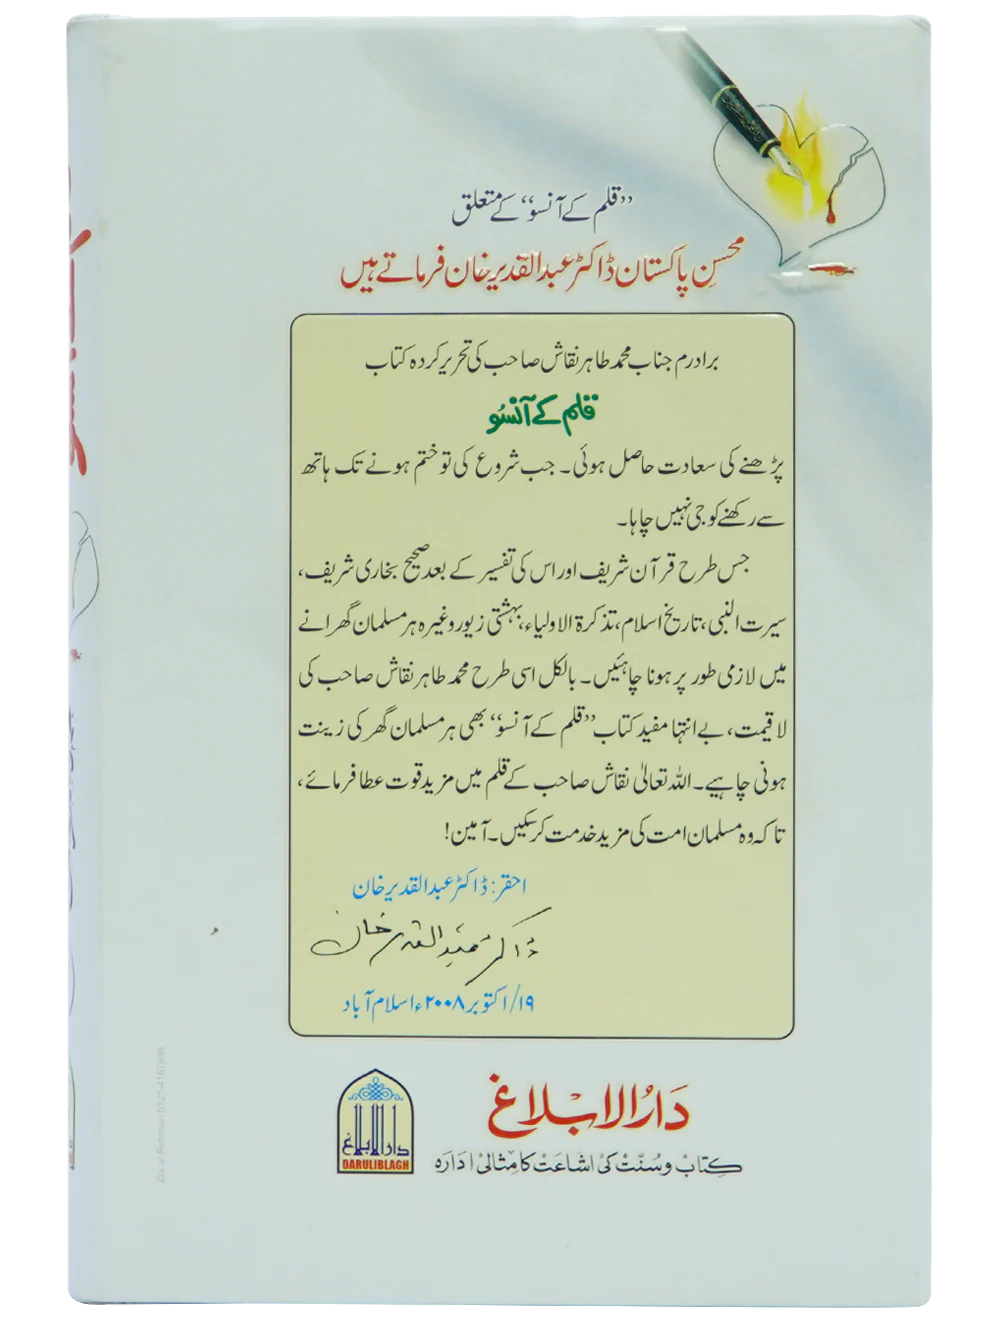 ”قلم کے آنسو“ کے متعلق
محسنِ پاکستان ڈاکٹر عبدالقدیر خان فرماتے ہیں
برادرم جناب محمد طاہر نقاش صاحب کی تحریر کردہ کتاب
قلم کے آنسُو
پڑھنے کی سعادت حاصل ہوئی۔ جب شروع کی تو ختم ہونے تک ہاتھ
سے رکھنے کو جی نہیں چاہا۔
جس طرح قرآن شریف اور اس کی تفسیر کے بعد صحیح بخاری شریف،
سیرت النبی، تاریخ اسلام، تذکرۃ الاولیاء، بہشتی زیور وغیرہ ہر مسلمان گھرانے
میں لازمی طور پر ہونا چاہئیں۔ بالکل اسی طرح محمد طاہر نقاش صاحب کی
لا قیمت، بے انتہا مفید کتاب ”قلم کے آنسو“ بھی ہر مسلمان گھر کی زینت
ہونی چاہیے۔ اللہ تعالیٰ نقاش صاحب کے قلم میں مزید قوت عطا فرمائے،
تاکہ وہ مسلمان امت کی مزید خدمت کر سکیں۔ آمین!
احقر: ڈاکٹر عبدالقدیر خان
ڈاکٹر عبدالقدیر خان
۱۹/اکتوبر ۲۰۰۸ء اسلام آباد
دَارُالابلاغ
کِتابْ و سُنّتْ کی اشاعَت کا مِثالی ادارہ
دارالابلاغ
DARULIBLAGH